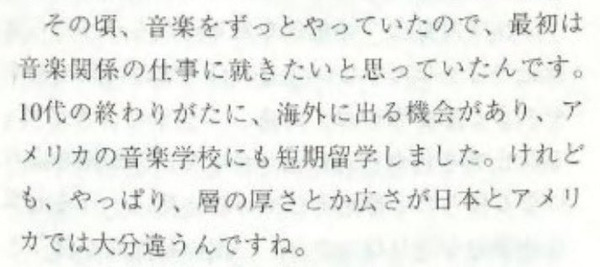 その頃、音楽をずっとやっていたので、最初は
音楽関係の仕事に就きたいと思っていたんです。
10代の終わりがたに、海外に出る機会があり、ア
メリカの音楽学校にも短期留学しました。けれど
も、やっぱり、層の厚さとか広さが日本とアメリ
カでは大分違うんですね。